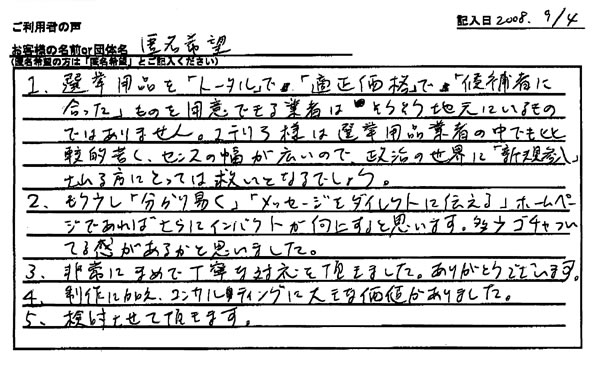 ご利用者の声
記入日 2008. 9/4
お客様の名前or団体名 匿名希望
(匿名希望の方は「匿名希望」とご記入ください)
1、選挙用品を「トータル」で、「適正価格」で「候補者に
合った」ものを用意できる業者は そうそう地元にいるもの
ではありません。ステリろ様は選挙用品業者の中でも比
較的若く、センスの幅が広いので、政治の世界に「新規参入」
される方にとっては救いとなるでしょう。
2、もう少し「分かり易く」「メッセージをダイレクトに伝える」ホームペー
ジであればさらにインパクトが向上すると思います。多少ゴチャつい
てる感があるかと思いました。
3、非常にまめで丁寧な対応を頂きました。ありがとうございます。
4、制作に加え、コンサルティングに大きな価値がありました。
5、検討させて頂きます。